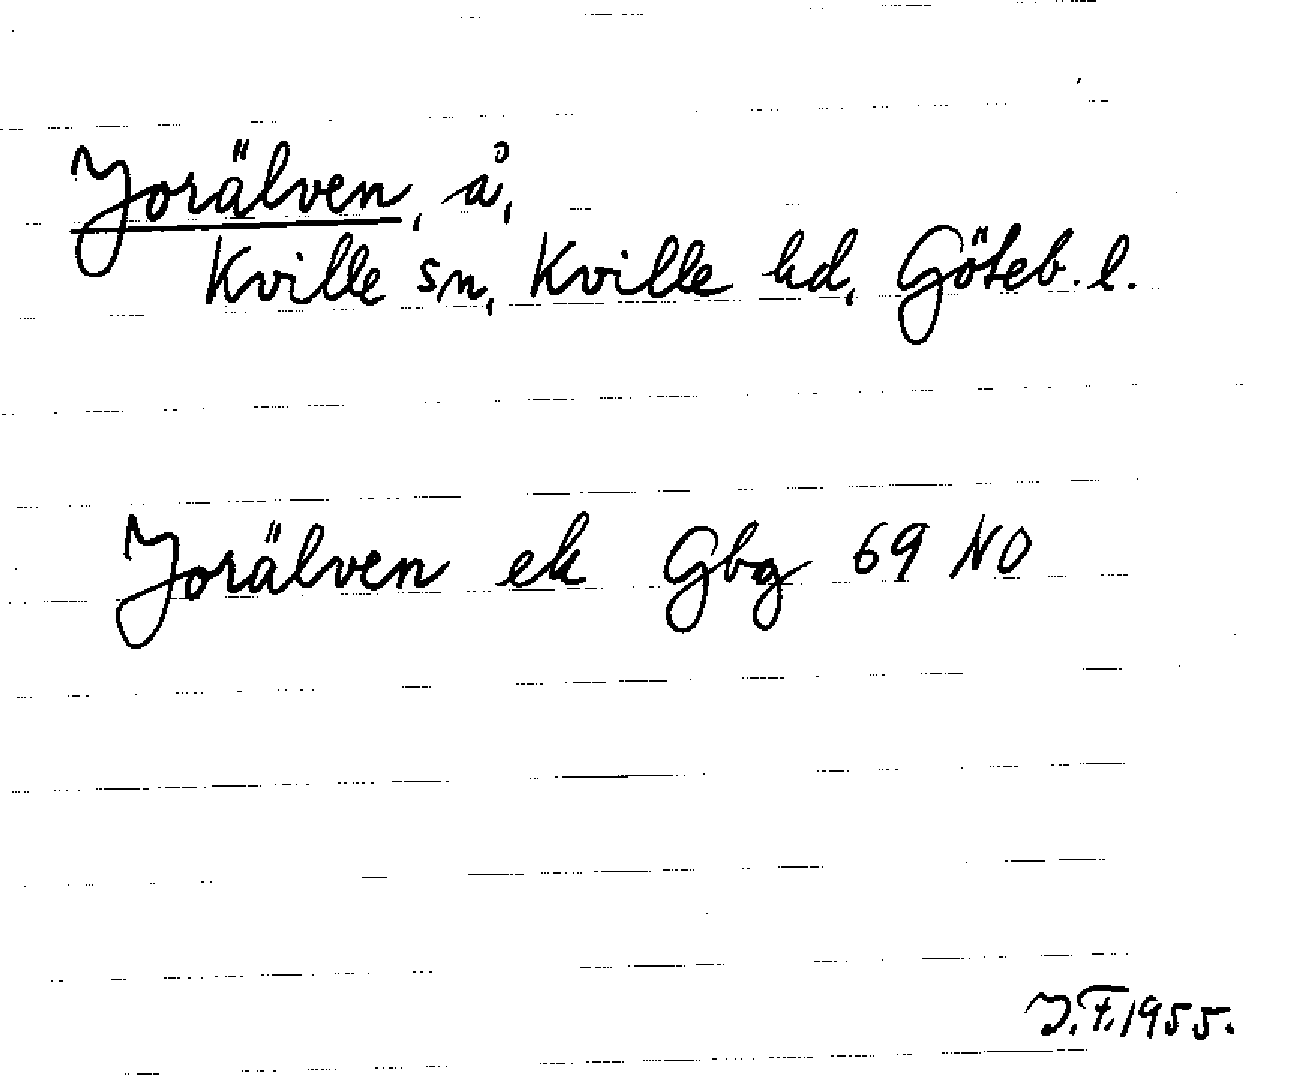 Jorälven, å,
Kville sn, Kville hd, Göteb. l.
Jorälven ek Gbg 69 NO
J.F.1955.